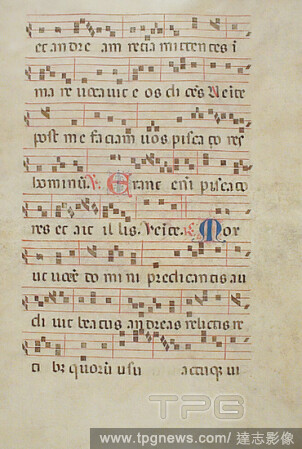 et andre am retia mittentes i
ma re vocavit e os di ces Veite
post me faciam vos pisca to res
dominū. V. Erant eni pisca to
res et ait il lis. Veite. R. Mox
ut voce do mi ni predicantis au
di vit beatus andreas relictis re
ti b quorū usu actuque vi
TPG
www.tpgnews.com/達志影像